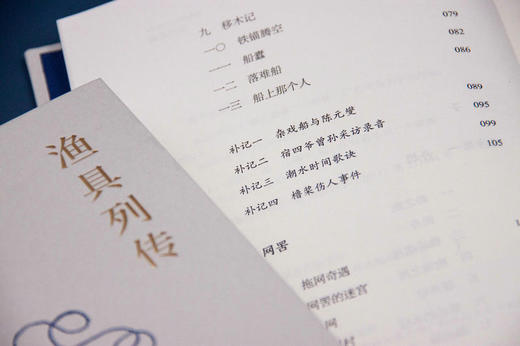 九 移木记 079
一〇 铁锚腾空 082
一一 船蠹 086
一二 落难船
一三 船上那个人 089
补记一 杂戏船与陈元燮 095
补记二 宿四爷曾孙采访录音 099
补记三 潮水时间歌诀 105
补记四 橹桨伤人事件
网罟
拖网奇遇
网罟的迷宫
渔具列传